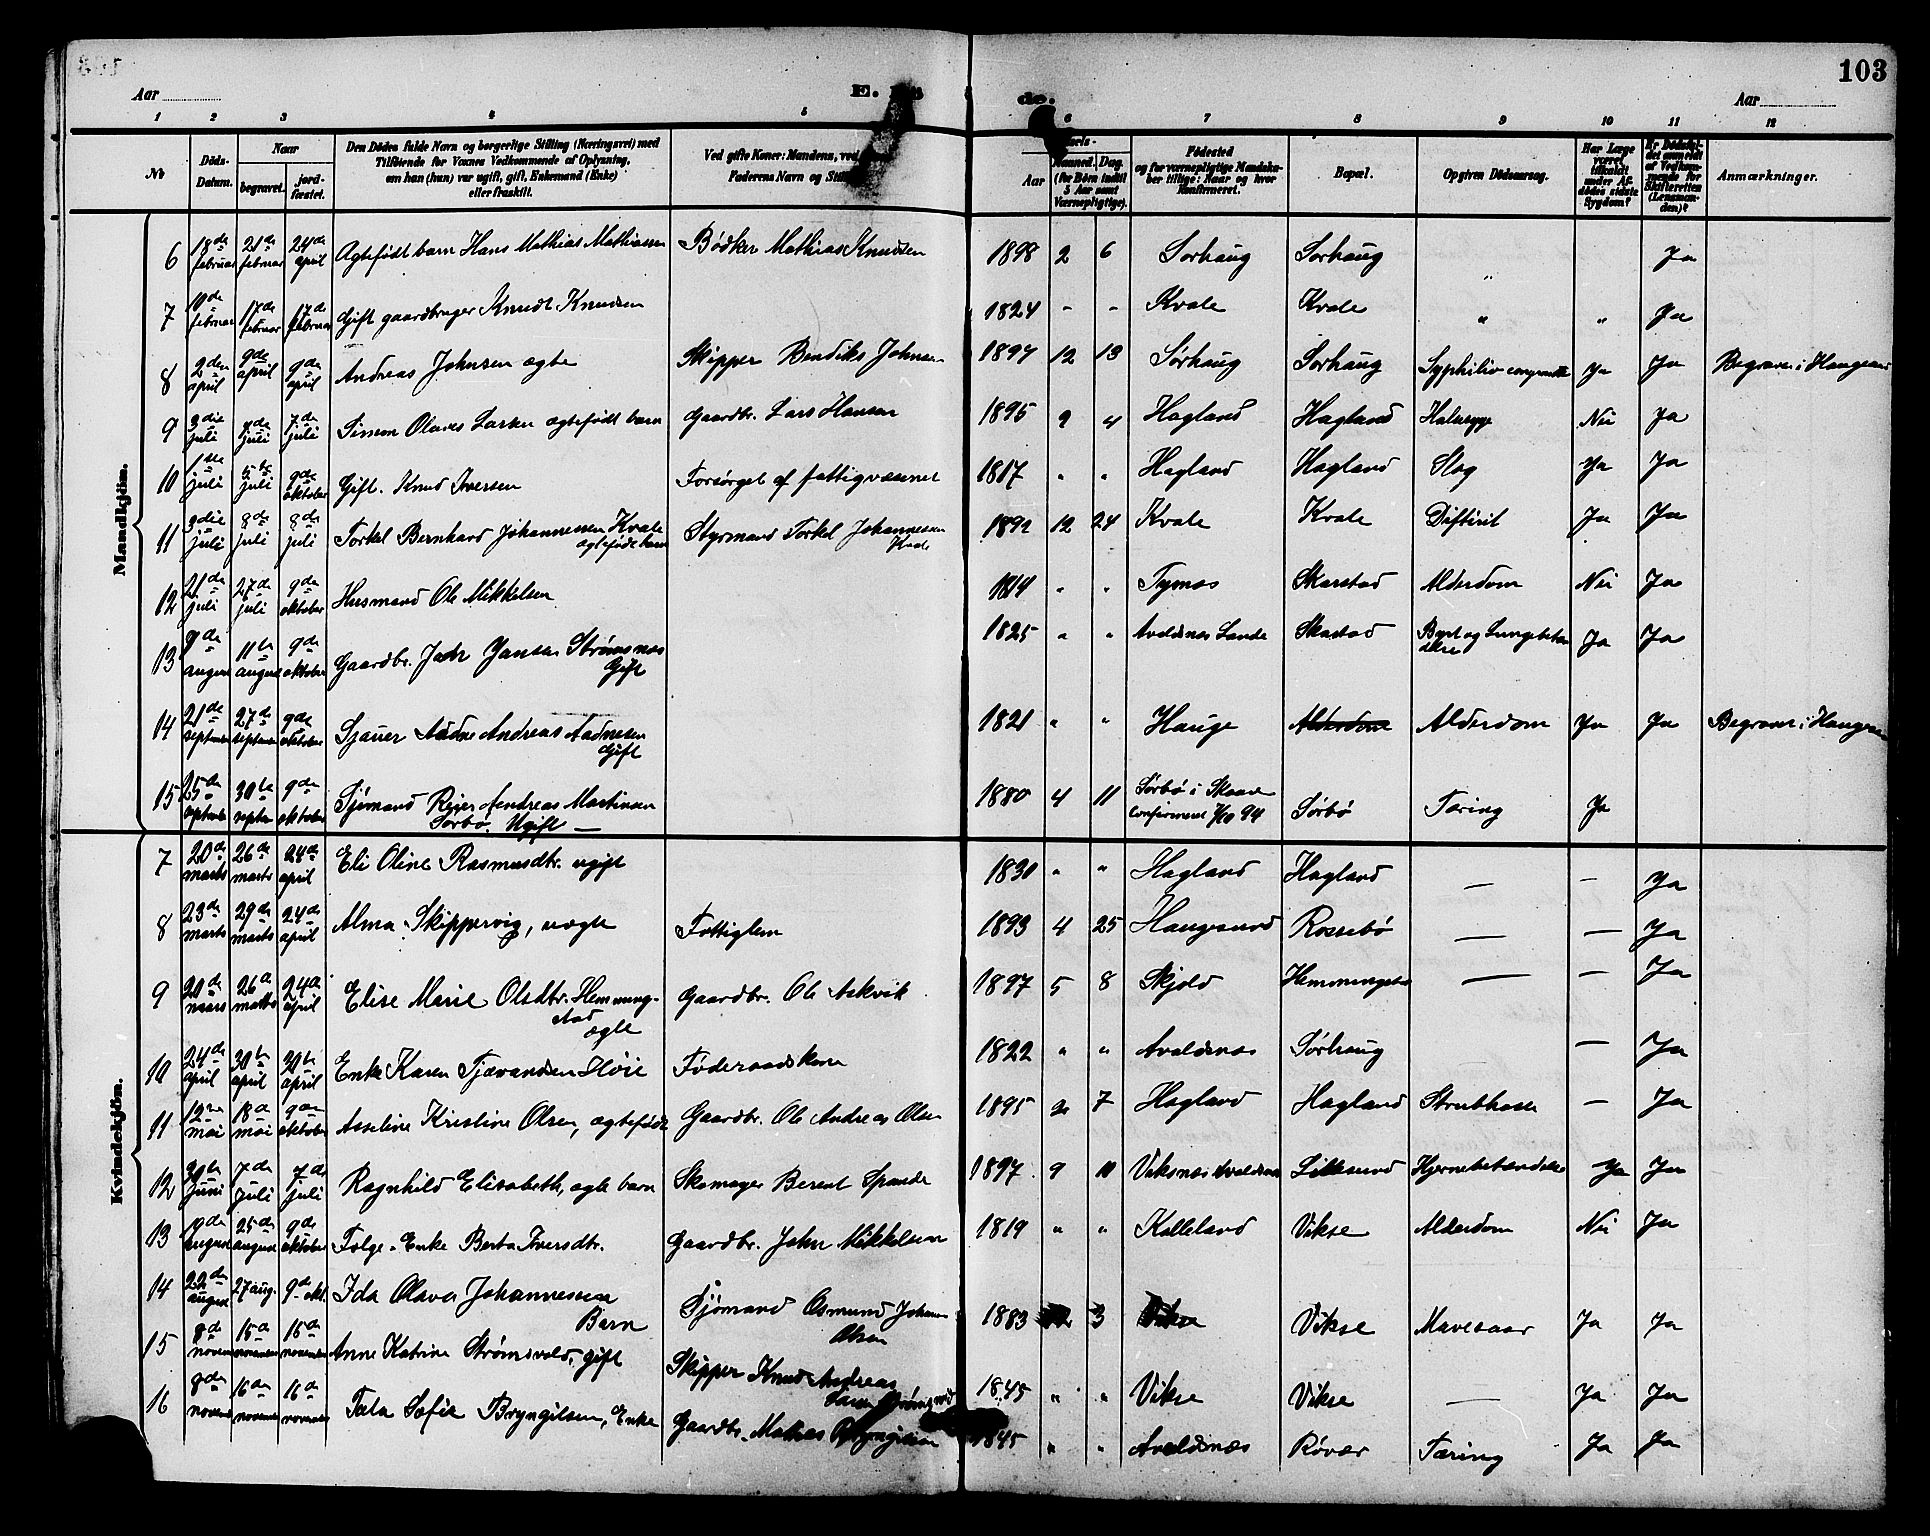 103
Aar
E.
de.
Aar
1 2 3 4 5 6 7 8 9 10 11 12
No
Döds-Datum.
Naar
begravet.
jord-fæstet.
Den Dödes fulde Navn og borgerlige Stilling (Næringsvei) med
Tilföiende for Voxnes Vedkommende af Oplysning,
om han (hun) var ugift, gift, Enkemand (Enke)
eller fraskilt.
Ved gifte Koner: Mandens, ved
Faderens Navn og
Aar
Maaned.
Dag.
(for Børn indtil
5 Aar samt
Værnepligtige).
Födested
og for værnepligtige Mandska-
ber tillige: Naar og hvor
konfirmeret.
Bopæl.
Opgiven Dödsaarsag.
Har Læge
været
tilkaldt
under Af-
dödes sidste
Sygdom?
Er Dödsfal-
det anmeldt
af Vedkom-
mende for
Skifteretten
(Lensman-
den)?
Anmærkninger.
Mandkjön.
6 18de februar 21de februar 24de april Ægtefødt barn Hans Mathias Mathiassen Bödker Mathias Knudsen 1898 2 6 Sorhaug Sorhaug " Ja
7 10de februar 17de februar 17de februar Gift gaardbruger Knud Knudsen 1824 - - Kvale Kvale " " Ja
8 2den april 9de april 9de april Andreas Johnsen ægte Skipper Bendiks Johnsen 1897 12 13 Sørhaug Sorhaug Syphilis Ja Ja Begraven i
9 3die juli 7de juli 7de juli Simon Olaves Larsen ægtefødt barn Gaardbr. Lars Hansen 1895 9 4 Hagland Hagland Halssyge Nei Ja
10 1ste juli 5te juli 9de oktober Gift. Knud Iversen Forsørget af fattigvæsenet 1817 " " Hagland Hagland Slag Ja Ja
11 3die juli 8de juli 8de juli Torkel Bernhard Johannessen Kvale
ægtefødt barn Styrmand Torkel Johannesen
Kvale 1892 12 24 Kvale Kvale Difterit Ja Ja
12 21de juli 27de juli 9de oktober Husmand Ole Mikkelsen 1814 " " Tysvæs Skarstad Alderdom Nei Ja
13 9de august 11te august 9de oktober Gaardbr. John Jansen Strømsnes
Gift 1825 " " Avaldsnes Lande Skarstad Bryst og Lungebetæn
delse Ja Ja
14 21de september 27de september 9de oktober Sjauer Aadne Andreas Aadnesen
Gift 1821 " " Hauge Alderdom Alderdom Ja Ja Begraven i
15 25de september 30te septbr 9de oktober Sjømand Reier Andreas Martinsen
Sørbø. Ugift — 1880 4 11 Sørbø i Skaare
confirmeret 7/10 94 Sørbø Tæring Ja
Kvindekjön.
7 20de marts 26de marts 24de april Eli Oline Rasmusdtr. ugift 1830 " " Hagland Hagland — — Ja
8 23de marts 29de marts 24de april Alma Skippervig, uægte Fattiglem 1893 4 25 Haugesund Rossebø — — Ja
9 20de marts 26de marts 24de april Elise Marie Olsdtr. Hemming-
stad
ægte Gaardbr. Ole Askvik 1897 5 8 Skjold — — Ja
10 24de april 30te april 30te april Enke Karen Tjævandsen Høie Føderaadskone 1822 " " Avaldsnæs Sørhaug — Ja
11 12te mai 18de mai 9de oktober Asseline Kristine Olsen, ægtefødt Gaardbr. Ole Andreas Olsen 1895 2 7 Hagland Hagland Strubhoste — Ja
12 30te Juni 7de Juli 7de juli Ragnhild Elisabeth, ægte barn Skomager Berent Spande 1897 9 10 Viksnæs Avaldsnæs Hjernebetændelse Ja Ja
13 19de august 25de august 9de oktober Følge-Enke Berta Iversdtr. Gaardbr. John Mikkelsen 1819 " " Kolleland Vikse Alderdom Nei Ja
14 22de august 27 aug. 9de okt. Ida Olava Johannessen
Barn Sjömand Osmund Johan
Olsen 1883 3 Vikse Vikse Mavesaar Ja Ja
15 8de november 15de november 15de november Anne Katrine Strømsvold, gift Skipper Knud Andreas
1845 " " Vikse Vikse — Ja Ja
16 8de november 16de november 16de november Tala Sofie Bryngilsen, Enke Gaardbr. Mathias Bryngilsen 1845 " " Avaldsnæs Røvær Tæring Ja Ja